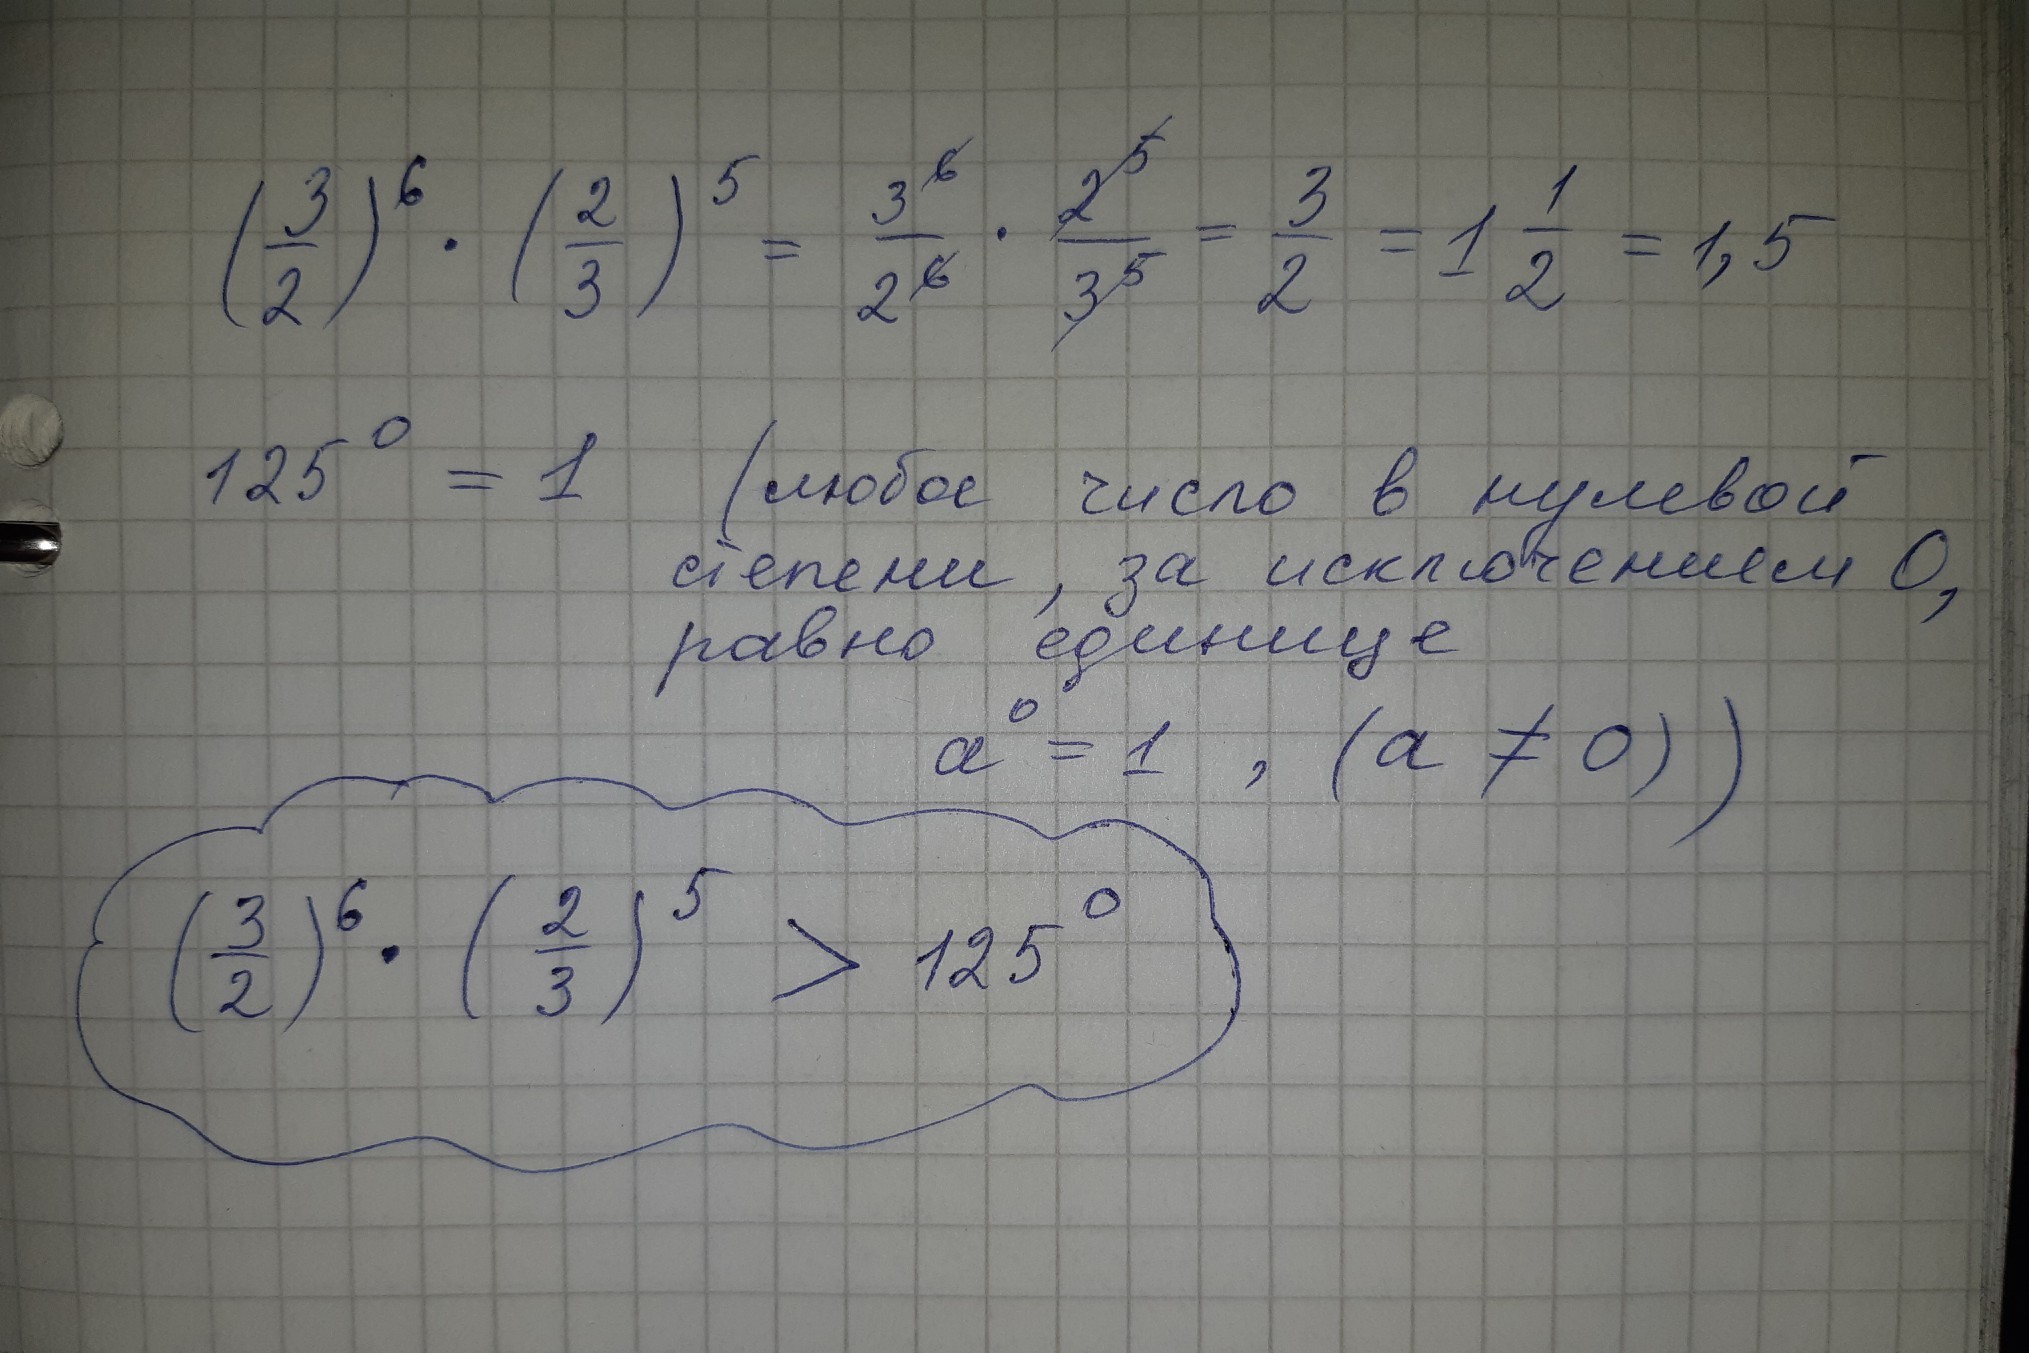 (3/2)⁶ · (2/3)⁵ = 3⁶/2⁶ · 2⁵/3⁵ = 3/2 = 1 1/2 = 1,5
125⁰ = 1 (любое число в нулевой
степени, за исключением 0,
равно единице
a⁰ = 1 , (a ≠ 0))
(3/2)⁶ · (2/3)⁵ > 125⁰